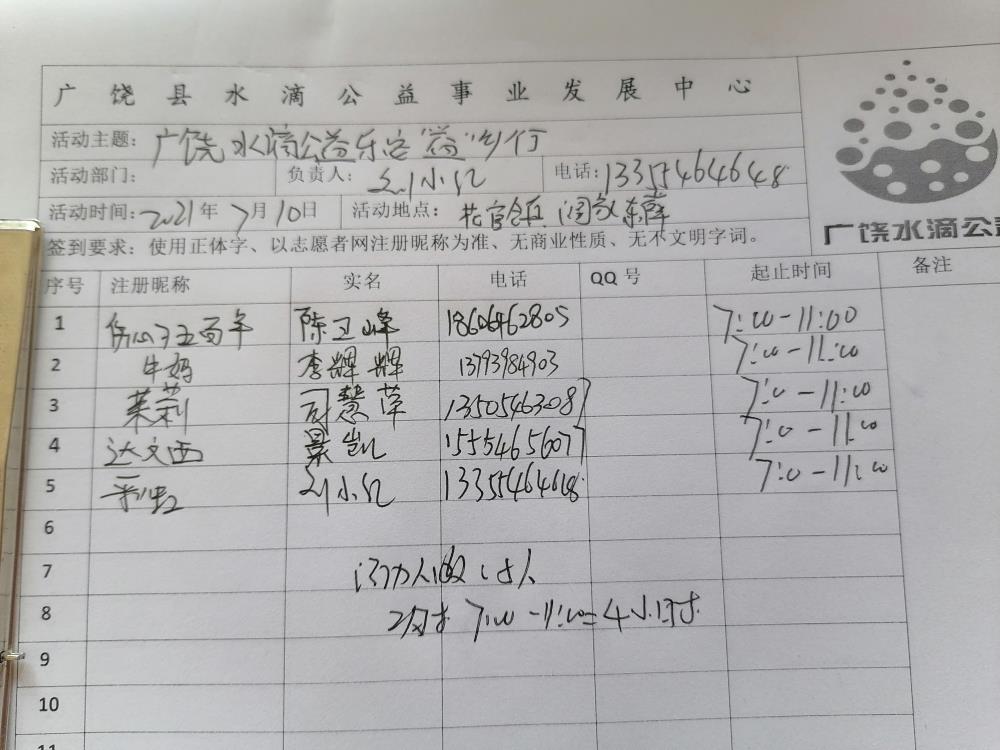 广饶县水滴公益事业发展中心
活动主题：广饶水滴公益乐安"益"乡行
活动部门： 负责人：刘小红 电话：13355464648
活动时间：2021年7月10日 活动地点：花官镇
签到要求：使用正体字、以志愿者网注册昵称为准、无商业性质、无不文明字词。
广饶水滴公益
序号 注册昵称 实名 电话 QQ号 起止时间 备注
1 伤心了五百年 陈卫峰 18606462805 7:00-11:00
2 牛妈 李辉辉 13793984903 7:00-11:00
3 茉莉 司慧萍 13505463087 7:00-11:00
4 达文西 景凯 15554656077 7:00-11:00
5 彩虹 刘小红 13355464648 7:00-11:00
6
7 活动人数：5人
8 7:00-11:00=4小时
9
10